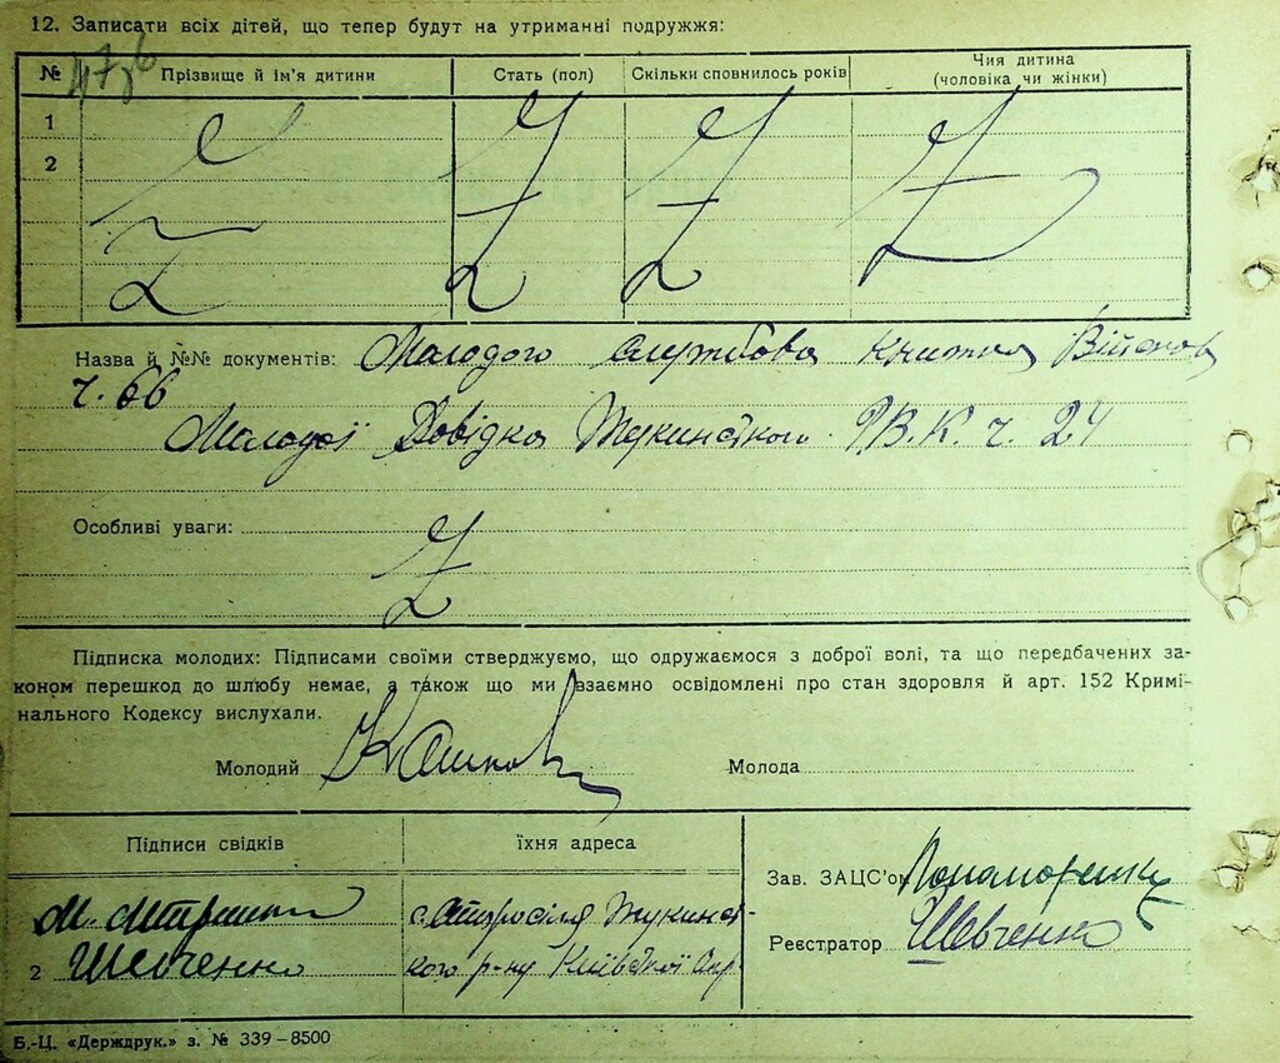 12. Записати всіх дітей, що тепер будут на утриманні подружжя:
№ Прізвище й ім'я дитини Стать (пол) Скільки сповнилось років Чия дитина
(чоловіка чи жінки)
1
2
Назва й №№ документів: Молодого службова книжка Військов
ч. 66
Молодої Довідка Жукинського Р.В.К. ч. 24
Особливі уваги:
Підписка молодих: Підписами своїми стверджуємо, що одружаємося з доброї волі, та що передбачених за-
коном перешкод до шлюбу немає, а також що ми взаємно освідомлені про стан здоровля й арт. 152 Кримі-
нального Кодексу вислухали.
Молодий Молода
Підписи свідків їхня адреса
Зав. ЗАЦС'ом Пономаренко
М. с. Жукинсь-
Реєстратор Шевченко
2 Шевченко кого р-ну Київської Окр
Б.-Ц. «Держдрук.» з. № 339-8500